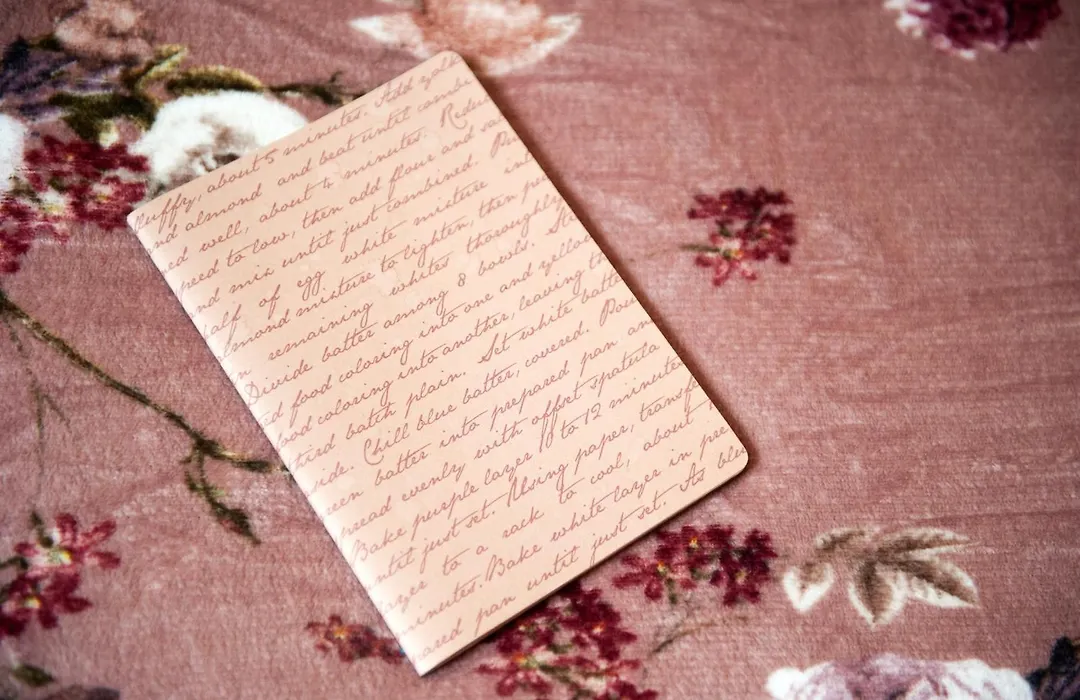 fluffy, about 5 minutes. Add yolk
nd almond and beat until combi
ed well, about 4 minutes. Reduc
peed to low, then add flour and sa
nd mix until just combined. Pu
half of egg white mixture int
lmond mixture to lighten, then pou
n remaining whites thoroughly
Divide batter among 8 bowls. Sto
d food coloring into one and yellow
ood coloring into another, leaving th
third batch plain. Set white batter
ide. Chill blue batter, covered. Pour
een batter into prepared pan an
pread evenly with offset spatula
Bake purple layer 10 to 12 minutes
ntil just set. Using paper, transfe
ayer to a rack to cool, about 1
minutes. Bake white layer in pre
ared pan until just set. As blu